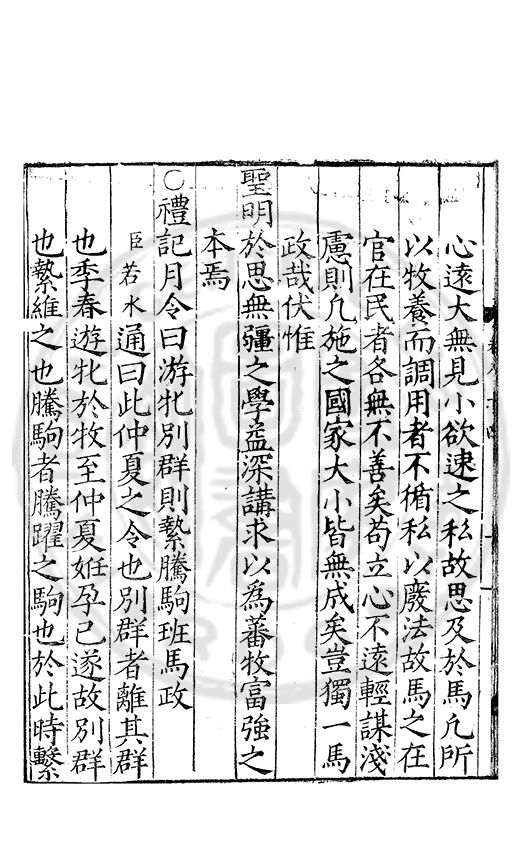 心遠大無見小欲速之私故思及於馬凡所
以牧養而調用者不循私以廢法故馬之在
官在民者各無不善矣苟立心不遠輕謀淺
慮則凡施之國家大小皆無成矣豈獨一馬
政哉伏惟
聖明於思無疆之學益深講求以為蕃牧富強之
本焉
○禮記月令曰游牝別群則縶騰駒班馬政
臣若水通曰此仲夏之令也別群者離其群
也季春遊牝於牧至仲夏姙孕已遂故別群
也縶維之也騰駒者騰躍之駒也於此時繫